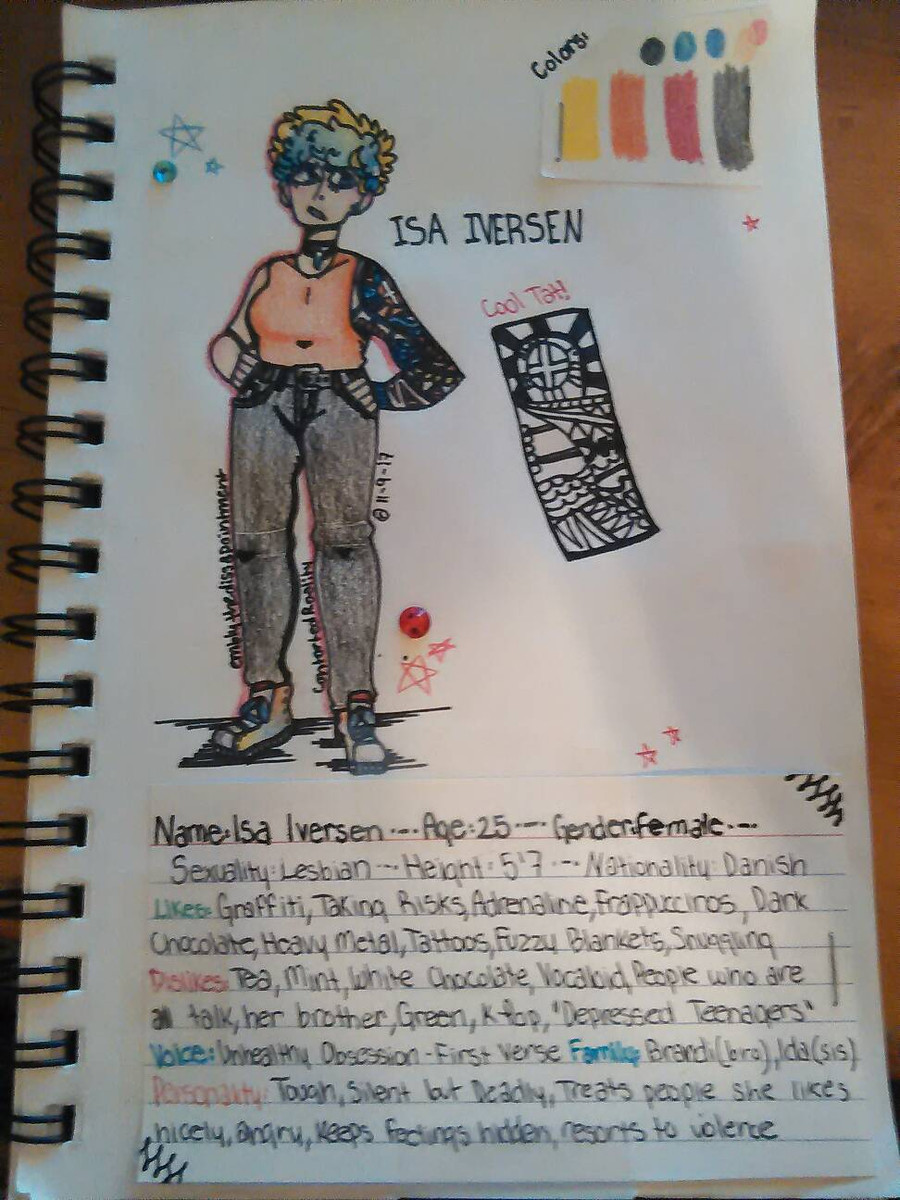 Colors:
ISA IVERSEN
Cool Tat!
© 11-9-17
Name: Isa Iversen --- Age: 25 --- Gender: female ---
Sexuality: Lesbian --- Height: 5'7 --- Nationality: Danish
Likes: Graffiti, Taking Risks, Adrenaline, Frappuccinos, Dark
Chocolate, Heavy Metal, Tattoos, Fuzzy Blankets, Snuggling
Dislikes: Tea, Mint, White Chocolate, Vocaloid, People who are
all talk, her brother, Green, K-Pop, "Depressed Teenagers"
Voice: Unhealthy Obsession - First Verse Family: Brandi (bro), Ida (sis)
Personality: Tough, Silent but Deadly, Treats people she likes
nicely, angry, keeps feelings hidden, resorts to violence